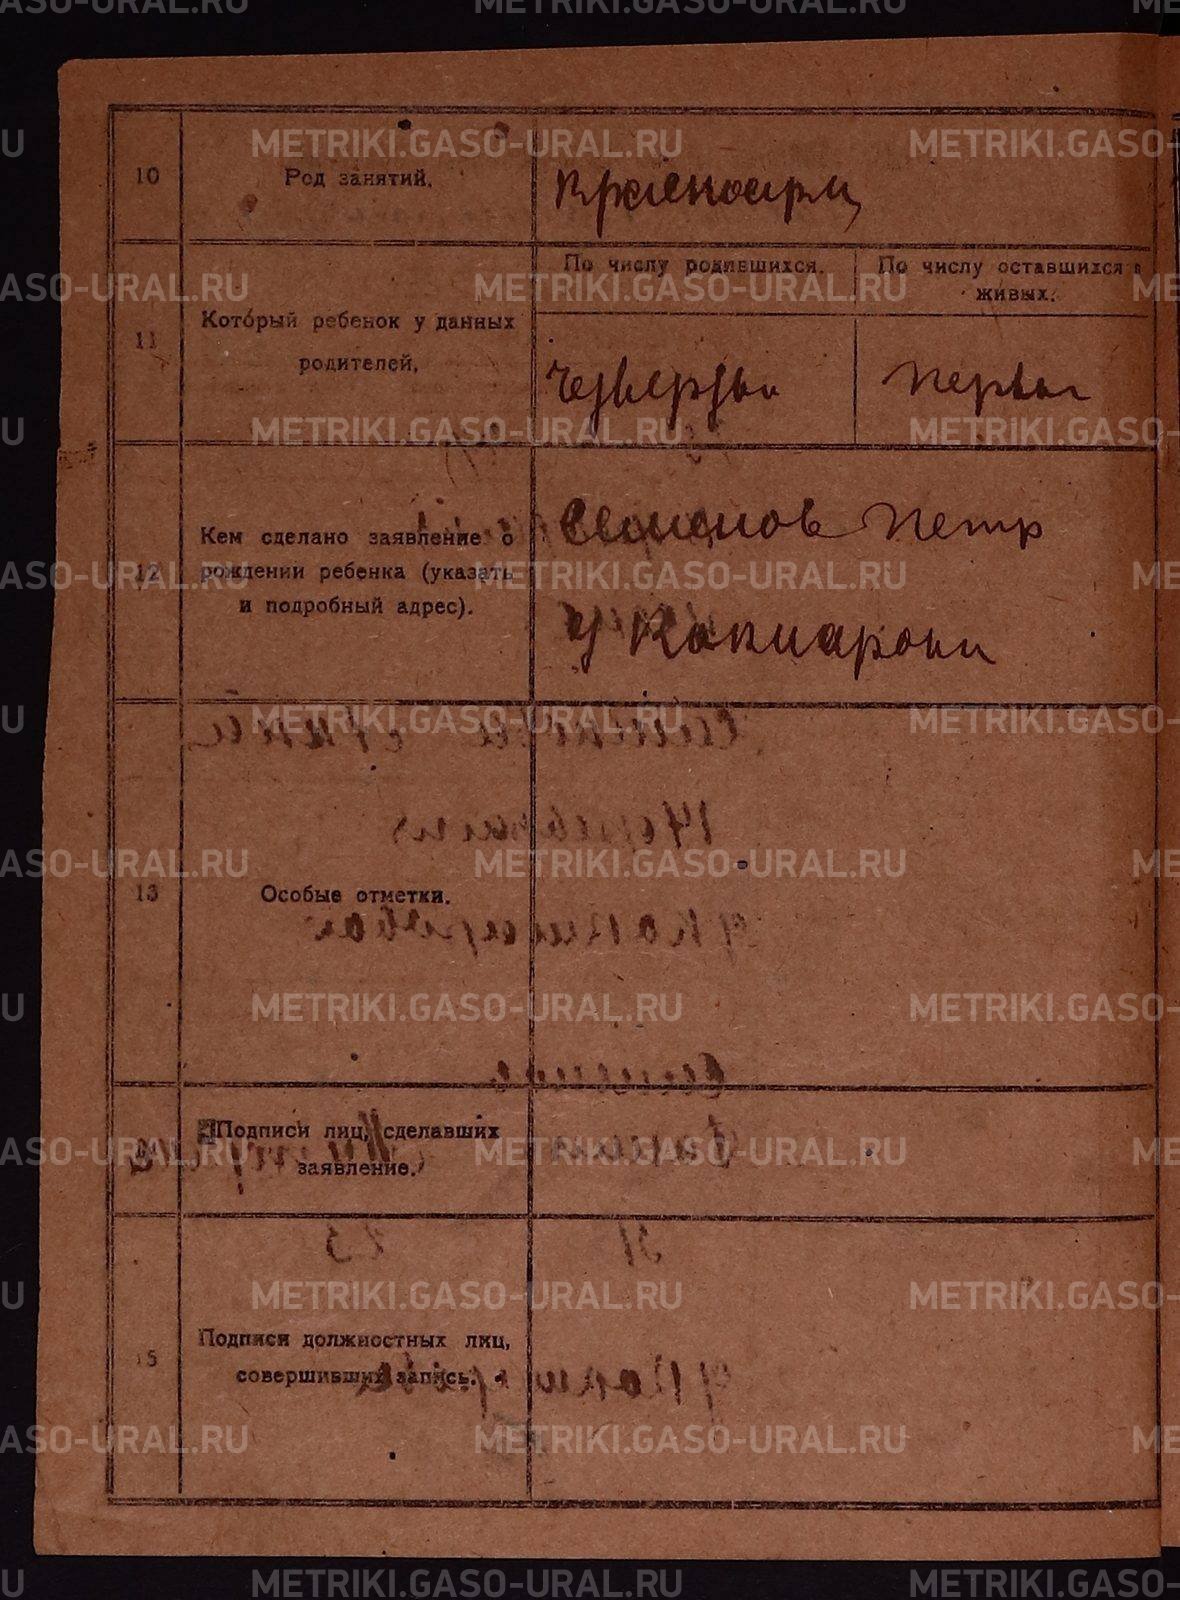 10
Род занятий.
красноарм
11
Который ребенок у данных
родителей.
По числу родившихся.
По числу оставшихся в
живых.
Четверты
Первы
12
Кем сделано заявление о
рождении ребенка (указать
и подробный адрес).
Семенов Петр
13
Особые отметки.
Подписи лиц, сделавших
заявление.
15
Подписи должностных лиц,
совершивших запись.
METRIKI.GASO-URAL.RU